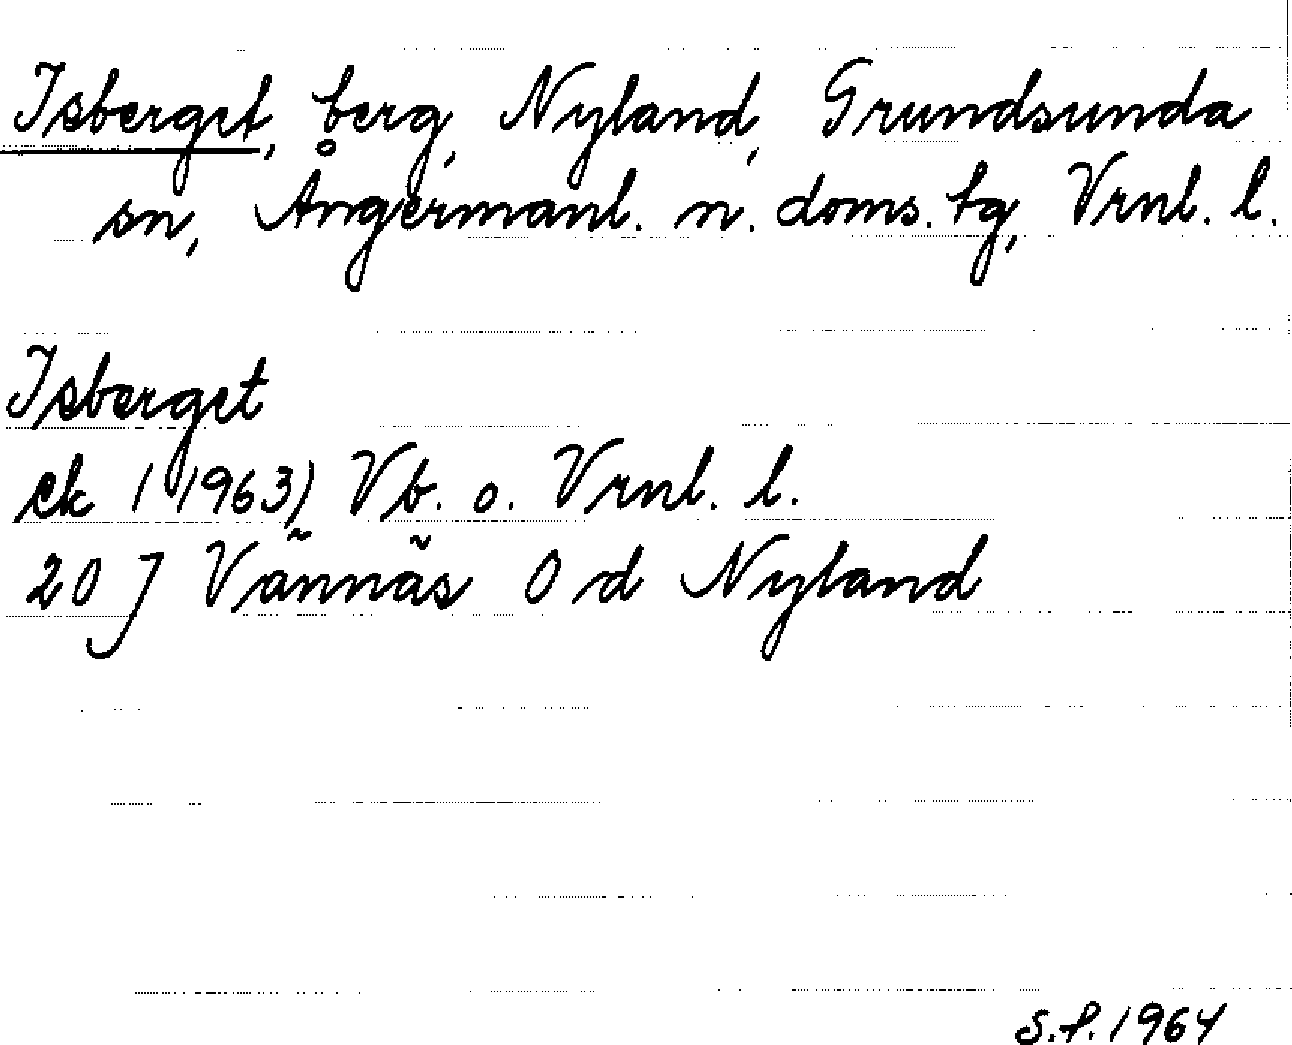 Isberget, berg, Nyland, Grundsunda
sn, Ångermanl. n. doms. tg, Vrnl. l.
Isberget
ek (1963) Vb. o. Vrnl. l.
20 J Vännäs 0 d Nyland
S.f. 1964